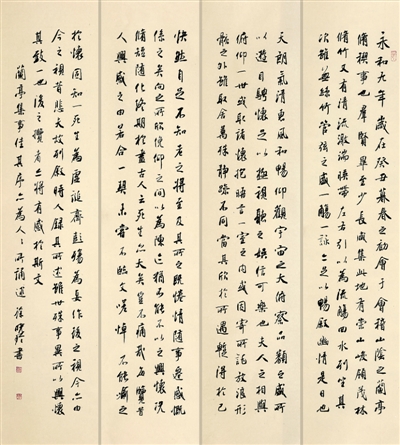 永和九年歲在癸丑暮春之初會于會稽山陰之蘭亭
脩禊事也羣賢畢至少長咸集此地有崇山峻領茂林
脩竹又有清流激湍暎帶左右引以為流觴曲水列坐其
次雖無絲竹管弦之盛一觴一詠亦足以暢敘幽情是日也
天朗氣清惠風和暢仰觀宇宙之大俯察品類之盛所
以遊目騁懷足以極視聽之娛信可樂也夫人之相與
俯仰一世或取諸懷抱晤言一室之內或因寄所託放浪形
骸之外雖取舍萬殊靜躁不同當其欣於所遇蹔得於己
快然自足不知老之將至及其所之既惓情隨事遷感慨
係之矣向之所欣俛仰之間以為陳迹猶不能不以之興懷況
脩短隨化終期於盡古人云死生亦大矣豈不痛哉每覽昔
人興感之由若合一契未嘗不臨文嗟悼不能喻之
於懷固知一死生為虛誕齊彭殤為妄作後之視今亦由
今之視昔悲夫故列敘時人錄其所述雖世殊事異所以興懷
其致一也後之攬者亦將有感於斯文
蘭亭集事佳其序亦為人人所誦道
書